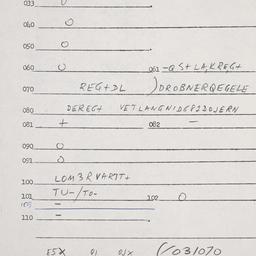 033 0
040 0
050 0
060 0 061 -QS+LA,KREG+
070 REG+DL )DROBNERQEGELE
080 DEREG+ VETLANGNIDGPIDOJERN
081 + 082 -
090 0
091 0
100 LOM3RVARTT+
101 TU-/TO- 102 0
103 -
110 -
031070